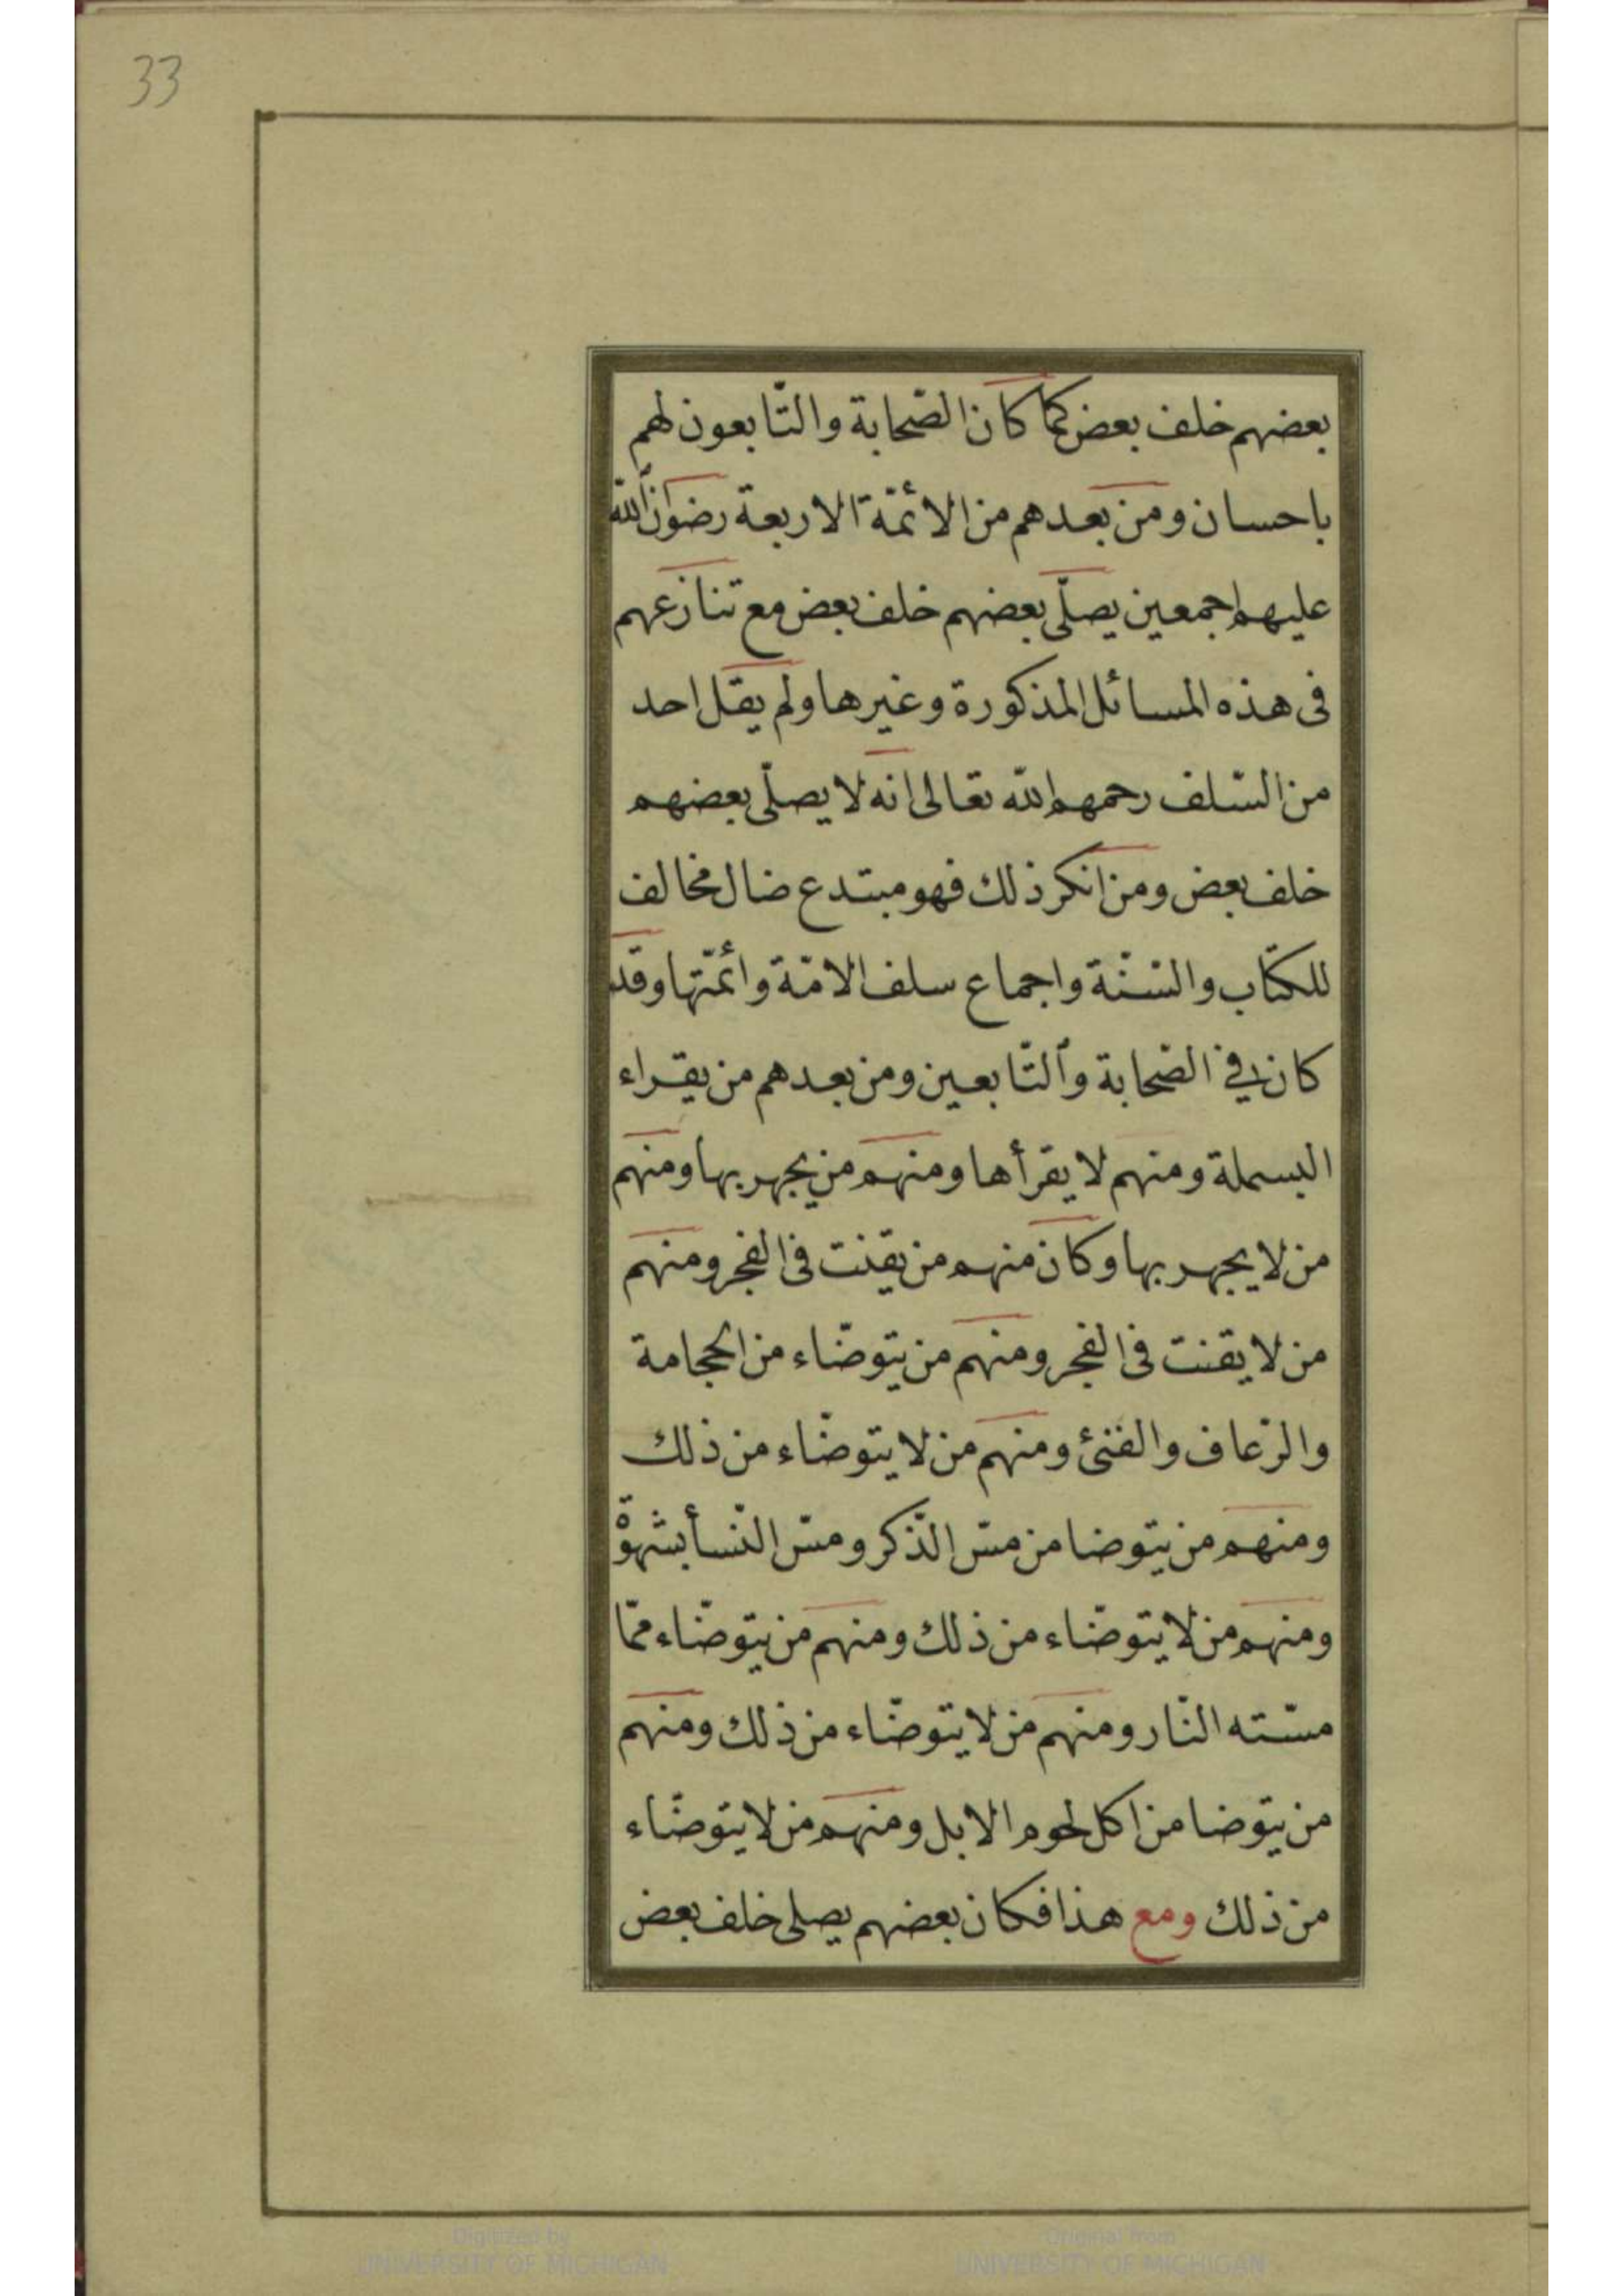 33
بعضهم خلف بعض كما كان الصّحابة والتّابعون لهم
باحسان ومن بعدهم من الائمّة الاربعة رضوان الله
عليهم اجمعين يصلّى بعضهم خلف بعض مع تنازعهم
فى هذه المسائل المذكورة وغيرها ولم يقل احد
من السّلف رحمهم الله تعالى انه لا يصلّى بعضهم
خلف بعض ومن انكر ذلك فهو مبتدع ضال مخالف
للكتاب والسّنّة واجماع سلف الامّة وائمّتها وقد
كان في الصّحابة والتّابعين ومن بعدهم من يقراء
البسملة ومنهم لا يقرأها ومنهم من يجهر بها ومنهم
من لا يجهر بها وكان منهم من يقنت فى الفجر ومنهم
من لا يقنت فى الفجر ومنهم من يتوضّاء من الحجامة
والرّعاف والقئ ومنهم من لا يتوضّاء من ذلك
ومنهم من يتوضا من مسّ الذّكر ومسّ النّسأ بشهوة
ومنهم من لا يتوضّاء من ذلك ومنهم من يتوضّاء ممّا
مسّته النّار ومنهم من لا يتوضّاء من ذلك ومنهم
من يتوضا من اكل لحوم الابل ومنهم من لا يتوضّاء
من ذلك ومع هذا فكان بعضهم يصلى خلف بعض
Digitized by
UNIVERSITY OF MICHIGAN
Original from
UNIVERSITY OF MICHIGAN